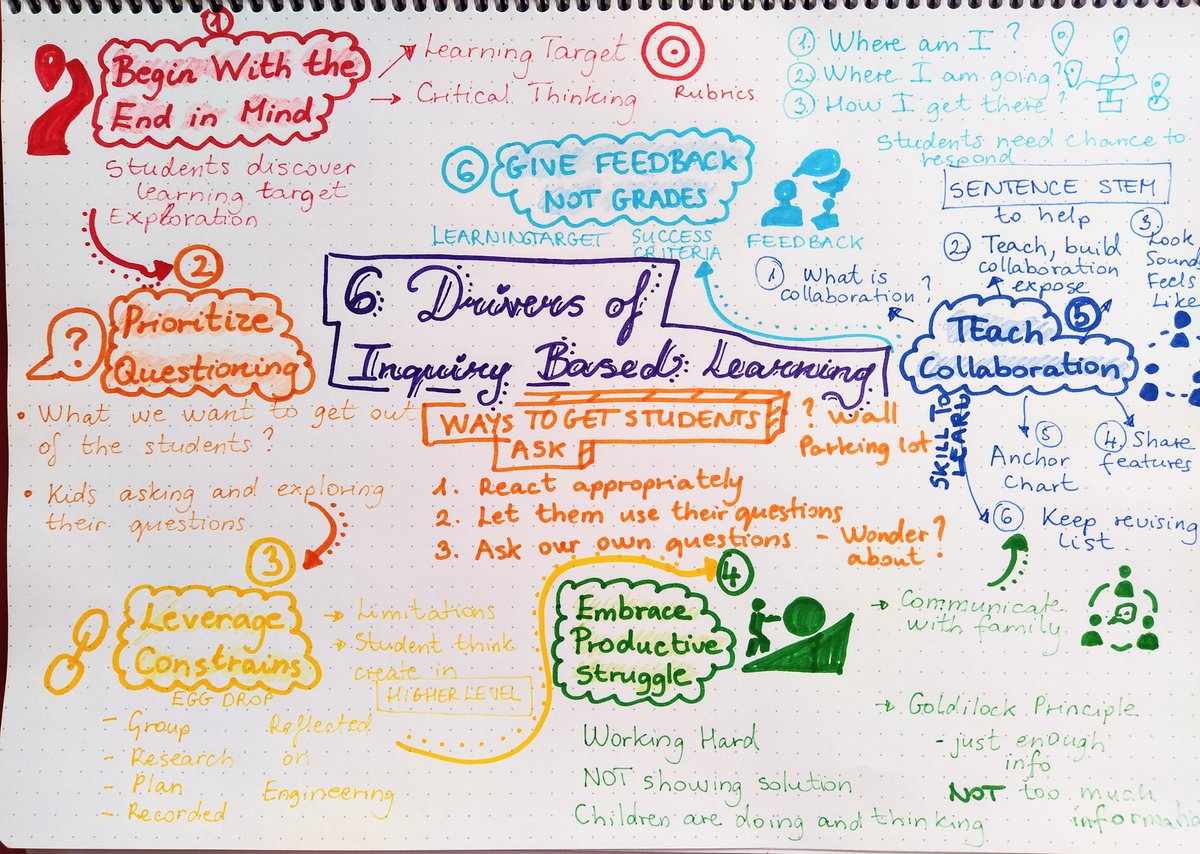 6 Drivers of
Inquiry Based Learning
1
Begin With the
End in Mind
Learning Target
Critical Thinking
Rubrics
Students discover
learning target
Exploration
2
?
Prioritize
Questioning
• What we want to get out
of the students?
• Kids asking and exploring
their questions
WAYS TO GET STUDENTS
ASK
? Wall
Parking lot
1. React appropriately
2. Let them use their questions
3. Ask our own questions - Wonder ?
about ?
3
Leverage
Constrains
EGG DROP
- Group
- Research
- Plan
- Recorded
Reflected
on
Engineering
→ Limitations
→ Student think
create in
HIGHER LEVEL
4
Embrace
Productive
Struggle
Working Hard
NOT showing solution
Children are doing and thinking
→ Communicate
with family
→ Goldilock Principle
- just enough
info
NOT too much
informatio
5
TEach
Collaboration
SKILL TO
LEARN
1 What is
collaboration?
2 Teach, build
collaboration
expose
3.
Look
Sound
Feels
Like
4. Share
features
5
Anchor
Chart
6 Keep revising
List
6
GIVE FEEDBACK
NOT GRADES
LEARNING TARGET
SUCCESS
CRITERIA
FEEDBACK
1. Where am I?
2 Where I am going?
3 How I get there?
Students need chance to
respond
SENTENCE STEM
to help